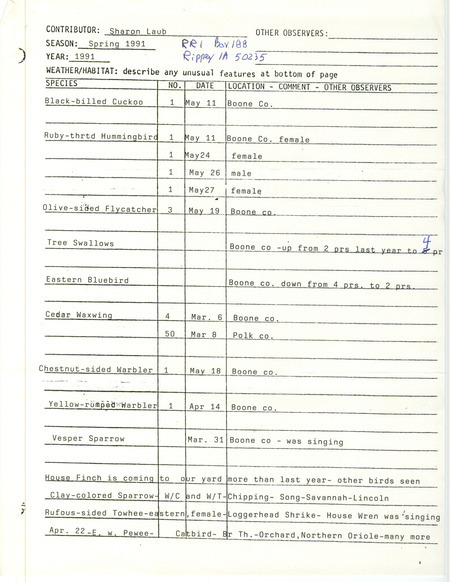 CONTRIBUTOR: Sharon Laub OTHER OBSERVERS:
SEASON: Spring 1991 RR1 Box 188
YEAR: 1991 Rippey IA 50235
WEATHER/HABITAT: describe any unusual features at bottom of page
SPECIES NO. DATE LOCATION - COMMENT - OTHER OBSERVERS
Black-billed Cuckoo 1 May 11 Boone Co.
Ruby-thrtd Hummingbird 1 May 11 Boone Co. female
1 May24 female
1 May 26 male
1 May27 female
Olive-sided Flycatcher 3 May 19 Boone co.
Tree Swallows Boone co -up from 2 prs last year to 4 pr
Eastern Bluebird Boone co. down from 4 prs. to 2 prs.
Cedar Waxwing 4 Mar. 6 Boone co.
50 Mar 8 Polk co.
Chestnut-sided Warbler 1 May 18 Boone co.
Yellow-rumped Warbler 1 Apr 14 Boone co.
Vesper Sparrow Mar. 31 Boone co - was singing
House Finch is coming to our yard more than last year- other birds seen
Clay-colored Sparrow- W/C and W/T-Chipping- Song-Savannah-Lincoln
Rufous-sided Towhee-eastern,female-Loggerhead Shrike- House Wren was singing
Apr. 22-E. w. Pewee- Catbird- Br Th.-Orchard,Northern Oriole-many more